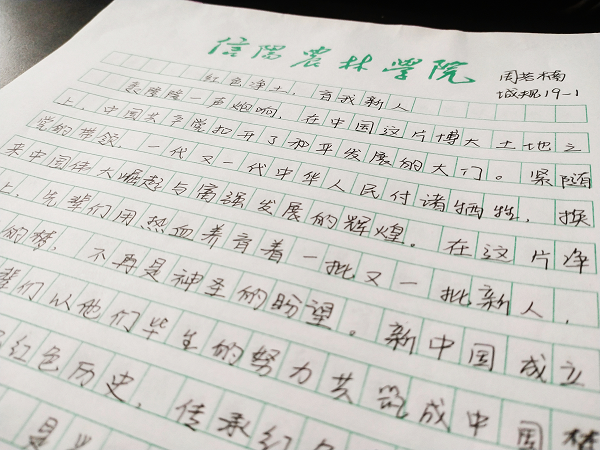 信阳农林学院
周芸楠
城规19-1
红色净土，有我新人
轰隆隆一声炮响，在中国这片博大土地之
上，中国共产党扣开了和平发展的大门。紧随
党的带领，一代又一代中华人民付诸牺牲，换
来中国伟大崛起与富强发展的辉煌。在这片净
上，先辈们用热血养育着一批又一批新人，
的梦，不再是神圣的盼望。新中国成立
辈们以他们毕生的努力共筑成中国梦
红色历史，传承红
是